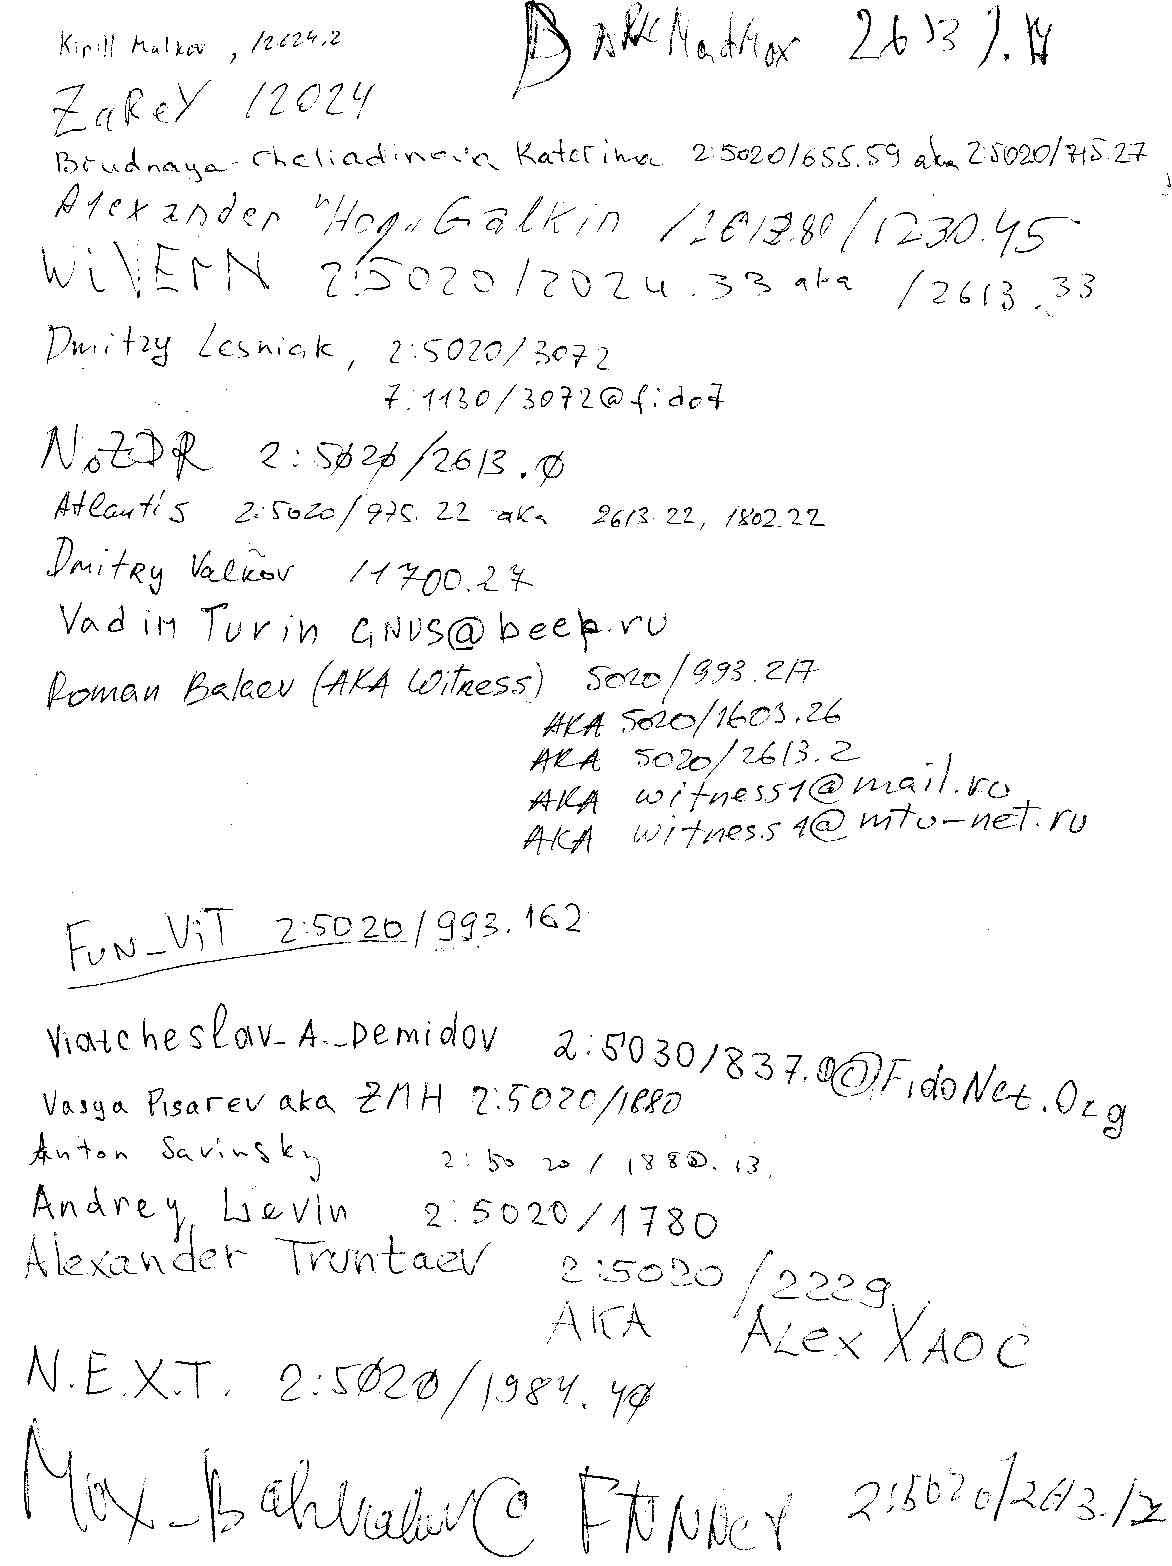 Kirill Malkov, /2024.2
DARK MadMax 2613/.17
ZaReY /2024
Brudnaya-Cheliadinova Katerina 2:5020/655.59 aka 2:5020/715.27,
Alexander "Hog" Galkin /1230.45
WiVErN 2:5020/2024.33 aka /2613.33
Dmitry Lesniak, 2:5020/3072
7:1130/3072@fido7
NoZDR 2:5020/2613.0
Atlantis 2:5020/975.22 aka 2613.22, 1802.22
Dmitry Valkov /1700.27
Vadim Turin GNUS@beep.ru
Roman Balaev (AKA Witness) 5020/993.217
AKA 5020/1603.26
AKA 5020/2613.2
AKA witness1@mail.ru
AKA witness1@mtu-net.ru
FuN_ViT 2:5020/993.162
Viatcheslav_A._Demidov 2:5030/837.0@FidoNet.Org
Vasya Pisarev aka ZMH 2:5020/1880
Anton Savinsky 2:5020/1880.13.
Andrey Lievin 2:5020/1780
Alexander Truntaev 2:5020/2229
AKA ALex XAOC
N.E.X.T. 2:5020/1984.40